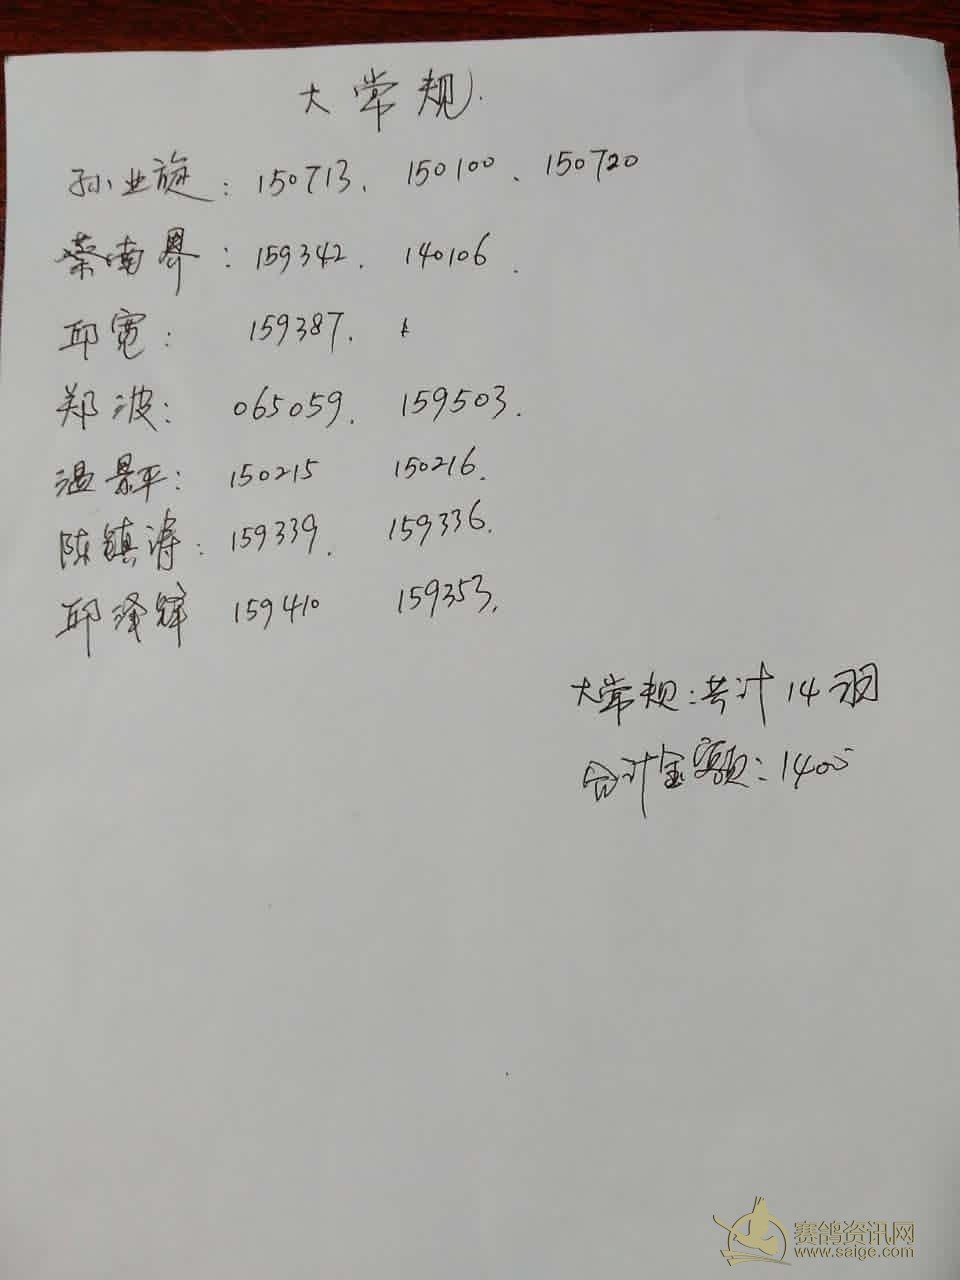 大常规.
孙业旋：150713、150100、150720
蔡南界：159342、140106.
邱宽：159387.
郑波：065059、159503.
温景平：150215 150216.
陈镇涛：159339、159336.
邱泽锋 159410 159353.
大常规：共计14羽
合计金额：1400
赛鸽资讯网
www.saige.com